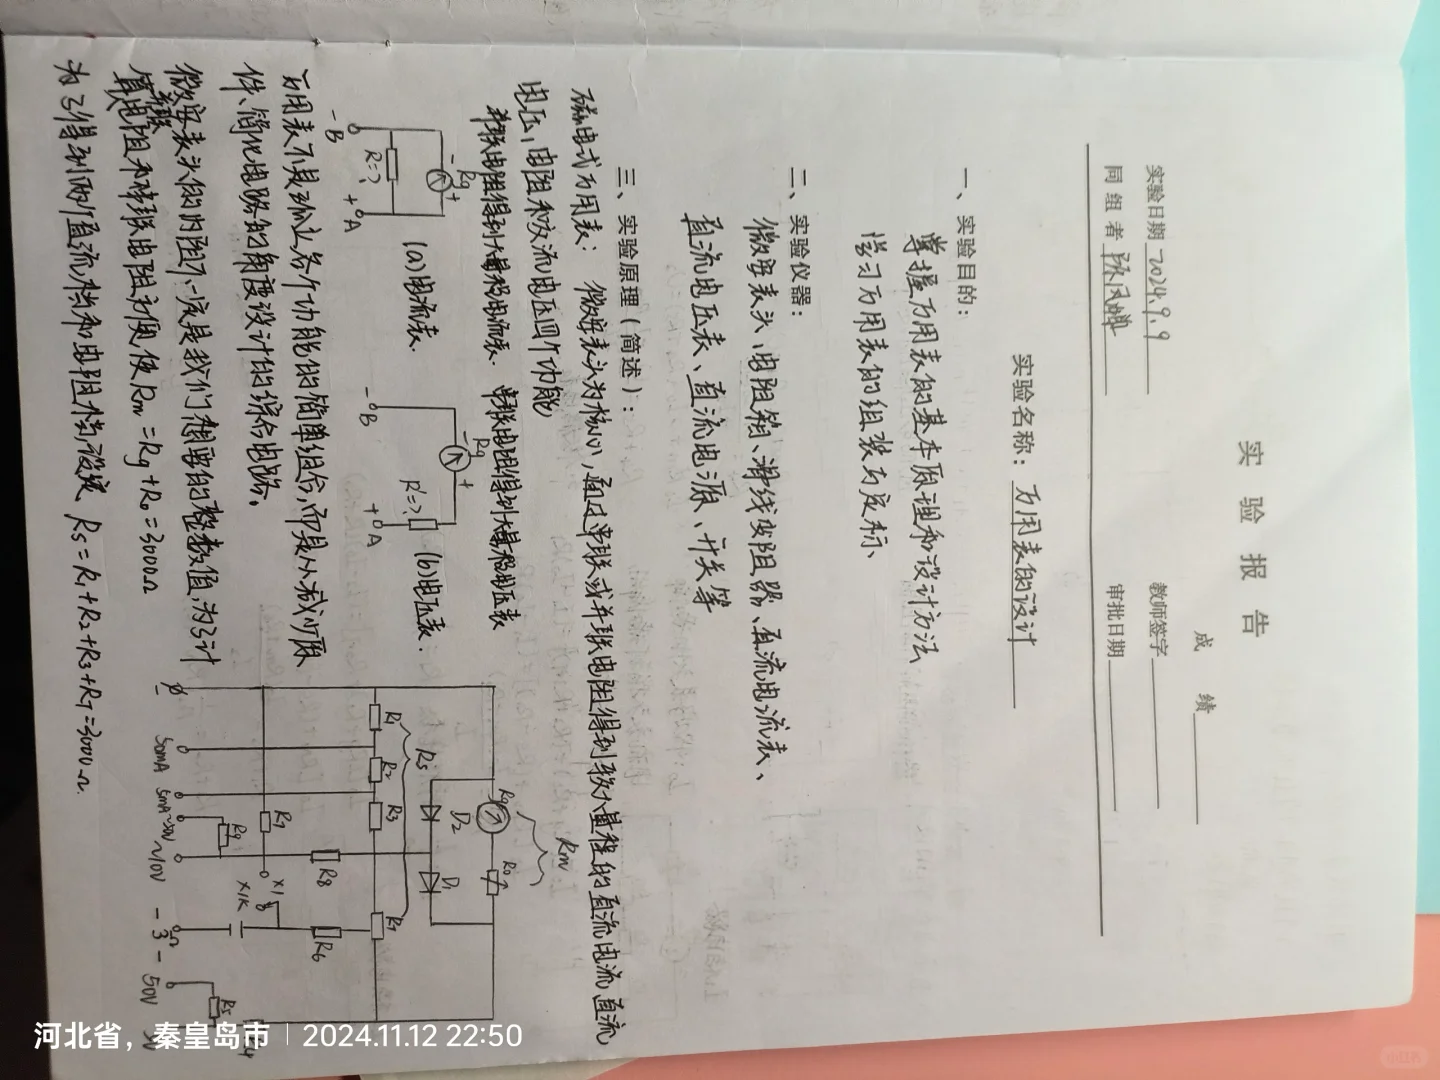 实验报告
成 绩
实验日期 2024.9.9 教师签字
同组者 张凤婵 审批日期
实验名称：万用表的设计
一、实验目的：
掌握万用表的基本原理和设计方法
学习万用表的组装与定标、
二、实验仪器：
微安表头、电阻箱、滑线变阻器、直流电流表、
直流电压表、直流电源、开关等
三、实验原理（简述）：
磁电式万用表： 微安表头为核心，通过串联或并联电阻得到较大量程的直流电流 直流
电压，电阻和交流电压四个功能
并联电阻得到大量程电流表. 串联电阻得到大量程电压表
Rg
- +
R=?
-B +A
(a)电流表.
Rg
- +
R'=?
-B +A
(b)电压表.
万用表不是独立各个功能的简单组合，而是从减少原
件、简化电路的角度设计的综合电路。
微安表头的内阻不一定是我们想要的整数值，为了计
算电阻和串联电阻方便使Rm=Rg+R0=3000Ω
为了得到两个直流档和电阻档设定 Rs=R1+R2+R3+R7=3000Ω.
Rm
Rg R0
D2 D1
Rs
R1 R2 R3 R7
R8 R6
R9
×1
×1K
50mA 5mA ~50V ~10V - Ω - 50V
R5
河北省，秦皇岛市 | 2024.11.12 22:50
小红书